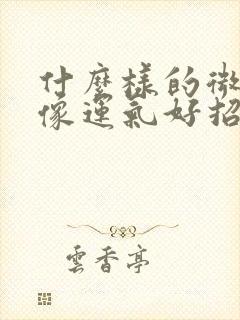 什麼樣的微
像運氣好招
雲香亭